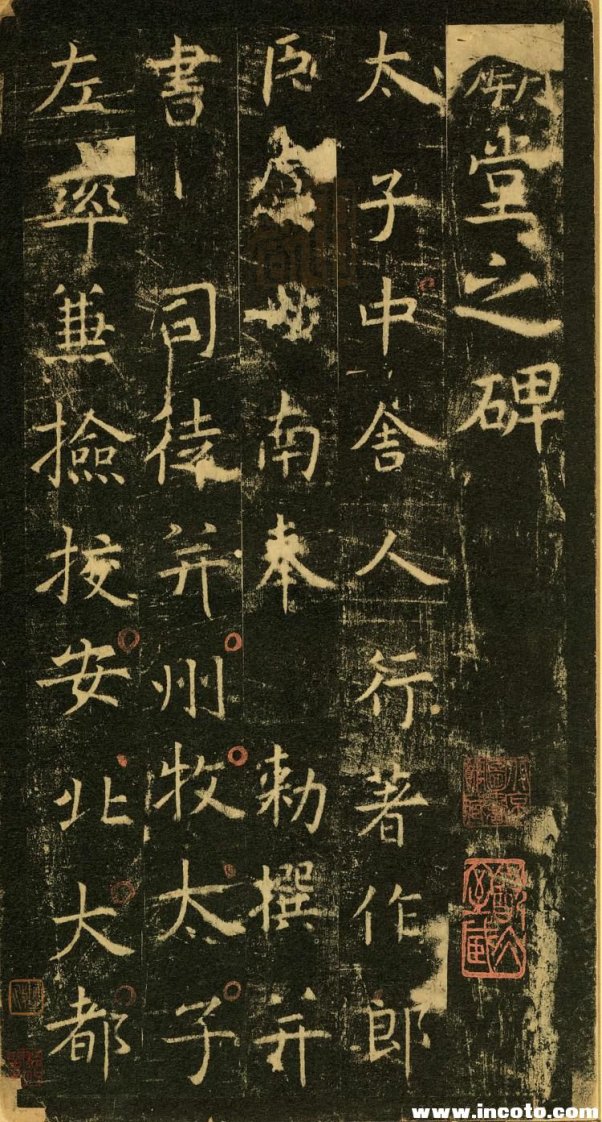 廟堂之碑
太子中舍人行著作郎
臣虞世南奉勅撰并
書司徒并州牧太子
左率兼撿挍安北大都
www.incoto.com